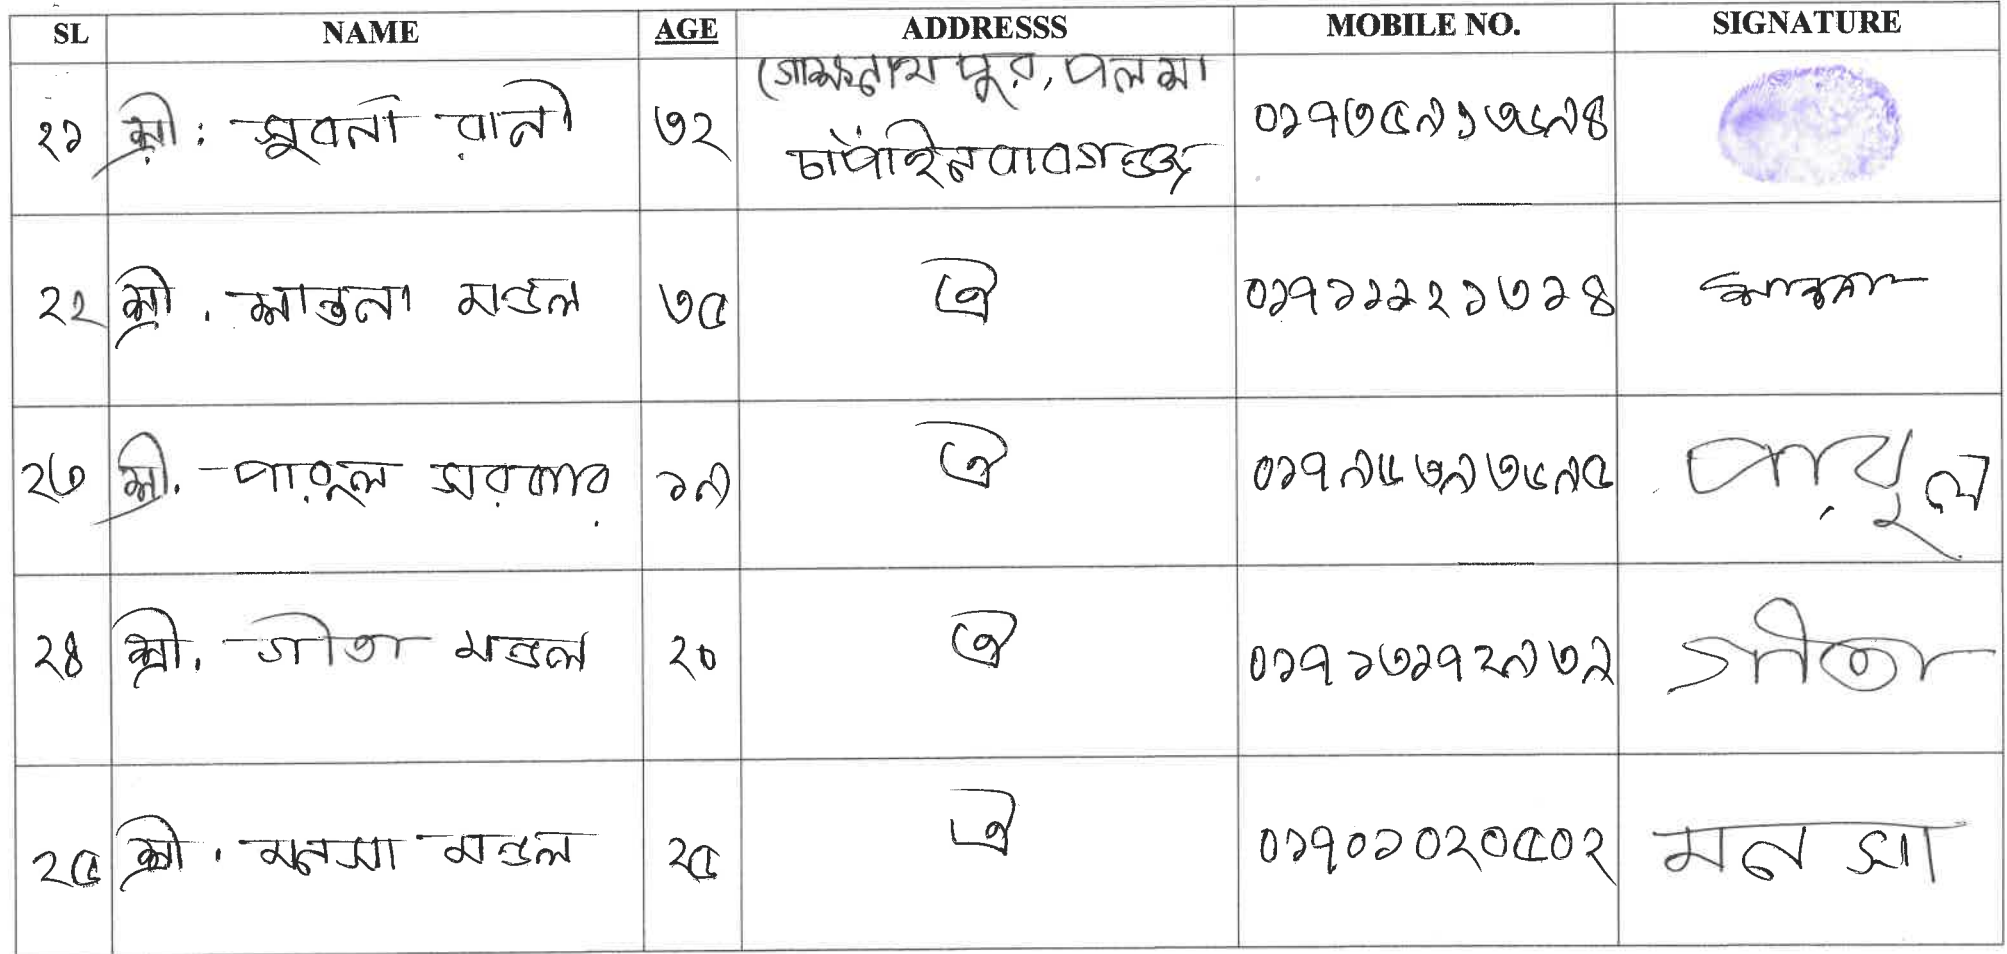 SL NAME AGE ADDRESSS MOBILE NO. SIGNATURE
২১ শ্রী: সুবর্না রানী ৩২ পুর, পলশা
চাঁপাইনবাবগঞ্জ
২২ শ্রী. শান্তনা মন্ডল ৩৫ ঐ ০১৭১১১২১৩১৪ শান্তনা
২৩ শ্রী. পারুল সরকার ১৯ ঐ ০১৭৯৬৩৯৩৬৯৫ পারুল
২৪ শ্রী. গীতা মন্ডল ২০ ঐ ০১৭১৩১৭২৯৩৯ গীতা
২৫ শ্রী. মনসা মন্ডল ২৫ ঐ ০১৭০১০২০৫০২ মনসা